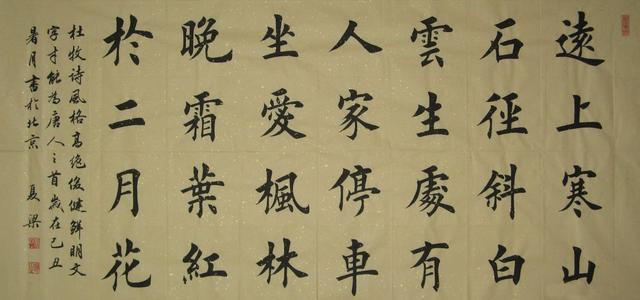 遠上寒山
石徑斜白
雲生處有
人家停車
坐愛楓林
晚霜葉紅
於二月花
杜牧詩風格高絶俊健鮮明文
字才能為唐人之首歲在己丑
暑月書於北京 夏梁